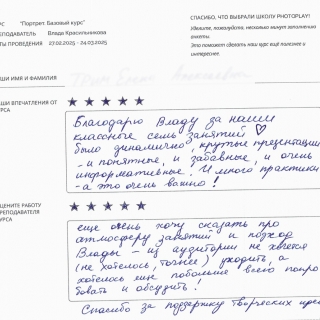 КУРС "Портрет. Базовый курс"
ПРЕПОДАВАТЕЛЬ Влада Красильникова
ДАТЫ ПРОВЕДЕНИЯ 27.02.2025 - 24.03.2025
СПАСИБО, ЧТО ВЫБРАЛИ ШКОЛУ PHOTOPLAY!
Уделите, пожалуйста, несколько минут заполнению
анкеты.
Это поможет сделать наш курс ещё полезнее и
интереснее.
ВАШИ ИМЯ И ФАМИЛИЯ
ВАШИ ВПЕЧАТЛЕНИЯ ОТ
КУРСА
Благодарю Владу за наши
классные семь занятий
было динамично, крутые презентации
- и понятные, и забавные, и очень
информативные! И много практики
- а это очень важно!
ОЦЕНИТЕ РАБОТУ
ПРЕПОДАВАТЕЛЯ
КУРСА
еще очень хочу сказать про
атмосферу занятий и подход
Влады - из аудитории не хочется
(не хотелось, точнее) уходить, а
хотелось еще побольше всего попро
бовать и обсудить!
Спасибо за поддержку творческих идей